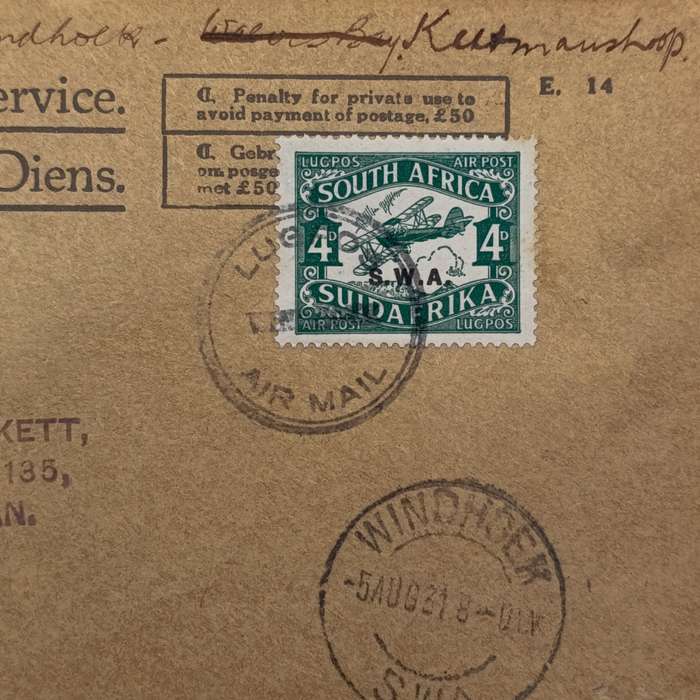 Windhoek - Walvis Bay. Keetmanshoop.
ervice.
₵. Penalty for private use to
avoid payment of postage, £50
E. 14
Diens.
₵. Gebr
om posge
met £50
LUGPOS AIR POST
SOUTH AFRICA
4D 4D
S.W.A.
SUIDAFRIKA
AIR POST LUGPOS
AIR MAIL
KETT,
135,
AN.
WINDHOEK
-5AUG31 8-
S.W.